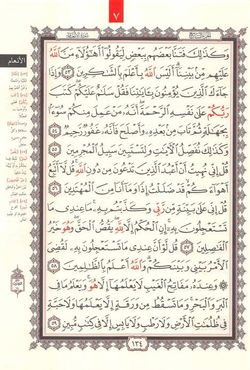 ٧
الأنعام
وَكَذَٰلِكَ فَتَنَّا بَعْضَهُم بِبَعْضٍ لِّيَقُولُوٓا۟ أَهَٰٓؤُلَآءِ مَنَّ ٱللَّهُ
عَلَيْهِم مِّنۢ بَيْنِنَآ ۗ أَلَيْسَ ٱللَّهُ بِأَعْلَمَ بِٱلشَّٰكِرِينَ ٥٣ وَإِذَا
جَآءَكَ ٱلَّذِينَ يُؤْمِنُونَ بِـَٔايَٰتِنَا فَقُلْ سَلَٰمٌ عَلَيْكُمْ ۖ كَتَبَ
رَبُّكُمْ عَلَىٰ نَفْسِهِ ٱلرَّحْمَةَ ۖ أَنَّهُۥ مَنْ عَمِلَ مِنكُمْ سُوٓءًۢا
بِجَهَٰلَةٍ ثُمَّ تَابَ مِنۢ بَعْدِهِۦ وَأَصْلَحَ فَأَنَّهُۥ غَفُورٌ رَّحِيمٌ ٥٤
وَكَذَٰلِكَ نُفَصِّلُ ٱلْـَٔايَٰتِ وَلِتَسْتَبِينَ سَبِيلُ ٱلْمُجْرِمِينَ ٥٥
قُلْ إِنِّى نُهِيتُ أَنْ أَعْبُدَ ٱلَّذِينَ تَدْعُونَ مِن دُونِ ٱللَّهِ ۚ قُل لَّآ أَتَّبِعُ
أَهْوَآءَكُمْ ۙ قَدْ ضَلَلْتُ إِذًا وَمَآ أَنَا۠ مِنَ ٱلْمُهْتَدِينَ ٥٦
قُلْ إِنِّى عَلَىٰ بَيِّنَةٍ مِّن رَّبِّى وَكَذَّبْتُم بِهِۦ ۚ مَا عِندِى مَا
تَسْتَعْجِلُونَ بِهِۦٓ ۚ إِنِ ٱلْحُكْمُ إِلَّا لِلَّهِ ۖ يَقُصُّ ٱلْحَقَّ ۖ وَهُوَ خَيْرُ
ٱلْفَٰصِلِينَ ٥٧ قُل لَّوْ أَنَّ عِندِى مَا تَسْتَعْجِلُونَ بِهِۦ لَقُضِىَ
ٱلْأَمْرُ بَيْنِى وَبَيْنَكُمْ ۗ وَٱللَّهُ أَعْلَمُ بِٱلظَّٰلِمِينَ ٥٨
وَعِندَهُۥ مَفَاتِحُ ٱلْغَيْبِ لَا يَعْلَمُهَآ إِلَّا هُوَ ۚ وَيَعْلَمُ مَا فِى
ٱلْبَرِّ وَٱلْبَحْرِ ۚ وَمَا تَسْقُطُ مِن وَرَقَةٍ إِلَّا يَعْلَمُهَا وَلَا حَبَّةٍ
فِى ظُلُمَٰتِ ٱلْأَرْضِ وَلَا رَطْبٍ وَلَا يَابِسٍ إِلَّا فِى كِتَٰبٍ مُّبِينٍ ٥٩
١٣٤